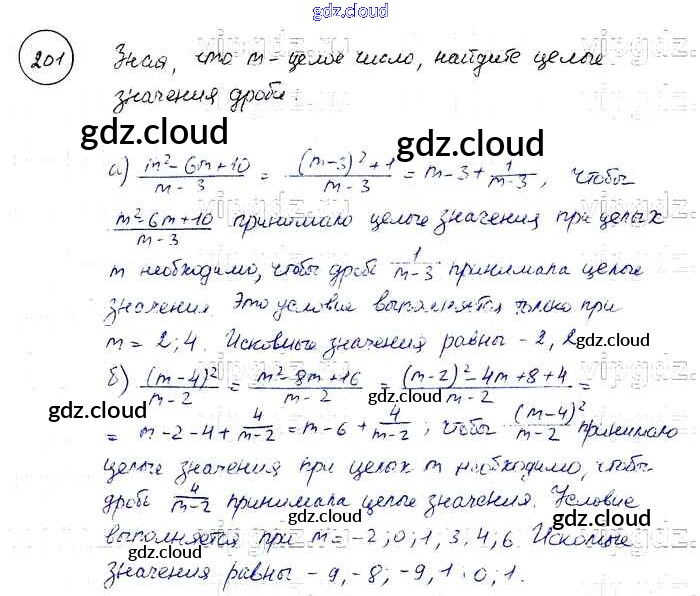 gdz.cloud
201 Зная, что m – целое число, найдите целые
значения дроби:
gdz.cloud gdz.cloud
а) (m²-6m+10)/(m-3) = ((m-3)²+1)/(m-3) = m-3+1/(m-3), чтобы
(m²-6m+10)/(m-3) принимало целые значения при целых
m необходимо, чтобы дробь 1/(m-3) принимала целые
значения. Это условие выполняется только при
m = 2; 4. Искомые значения равны -2, 2
gdz.cloud
б) (m-4)²/(m-2) = (m²-8m+16)/(m-2) = ((m-2)²-4m+8+4)/(m-2) =
gdz.cloud gdz.cloud gdz.cloud
= m-2-4+4/(m-2) = m-6+4/(m-2), чтобы (m-4)²/(m-2) принимало
целые значения при целых m необходимо, чтобы
дробь 4/(m-2) принимала целые значения. Условие
выполняется при m = -2; 0; 1, 3, 4; 6. Искомые
gdz.cloud gdz.cloud
значения равны -9, -8; -9, 1; 0; 1.